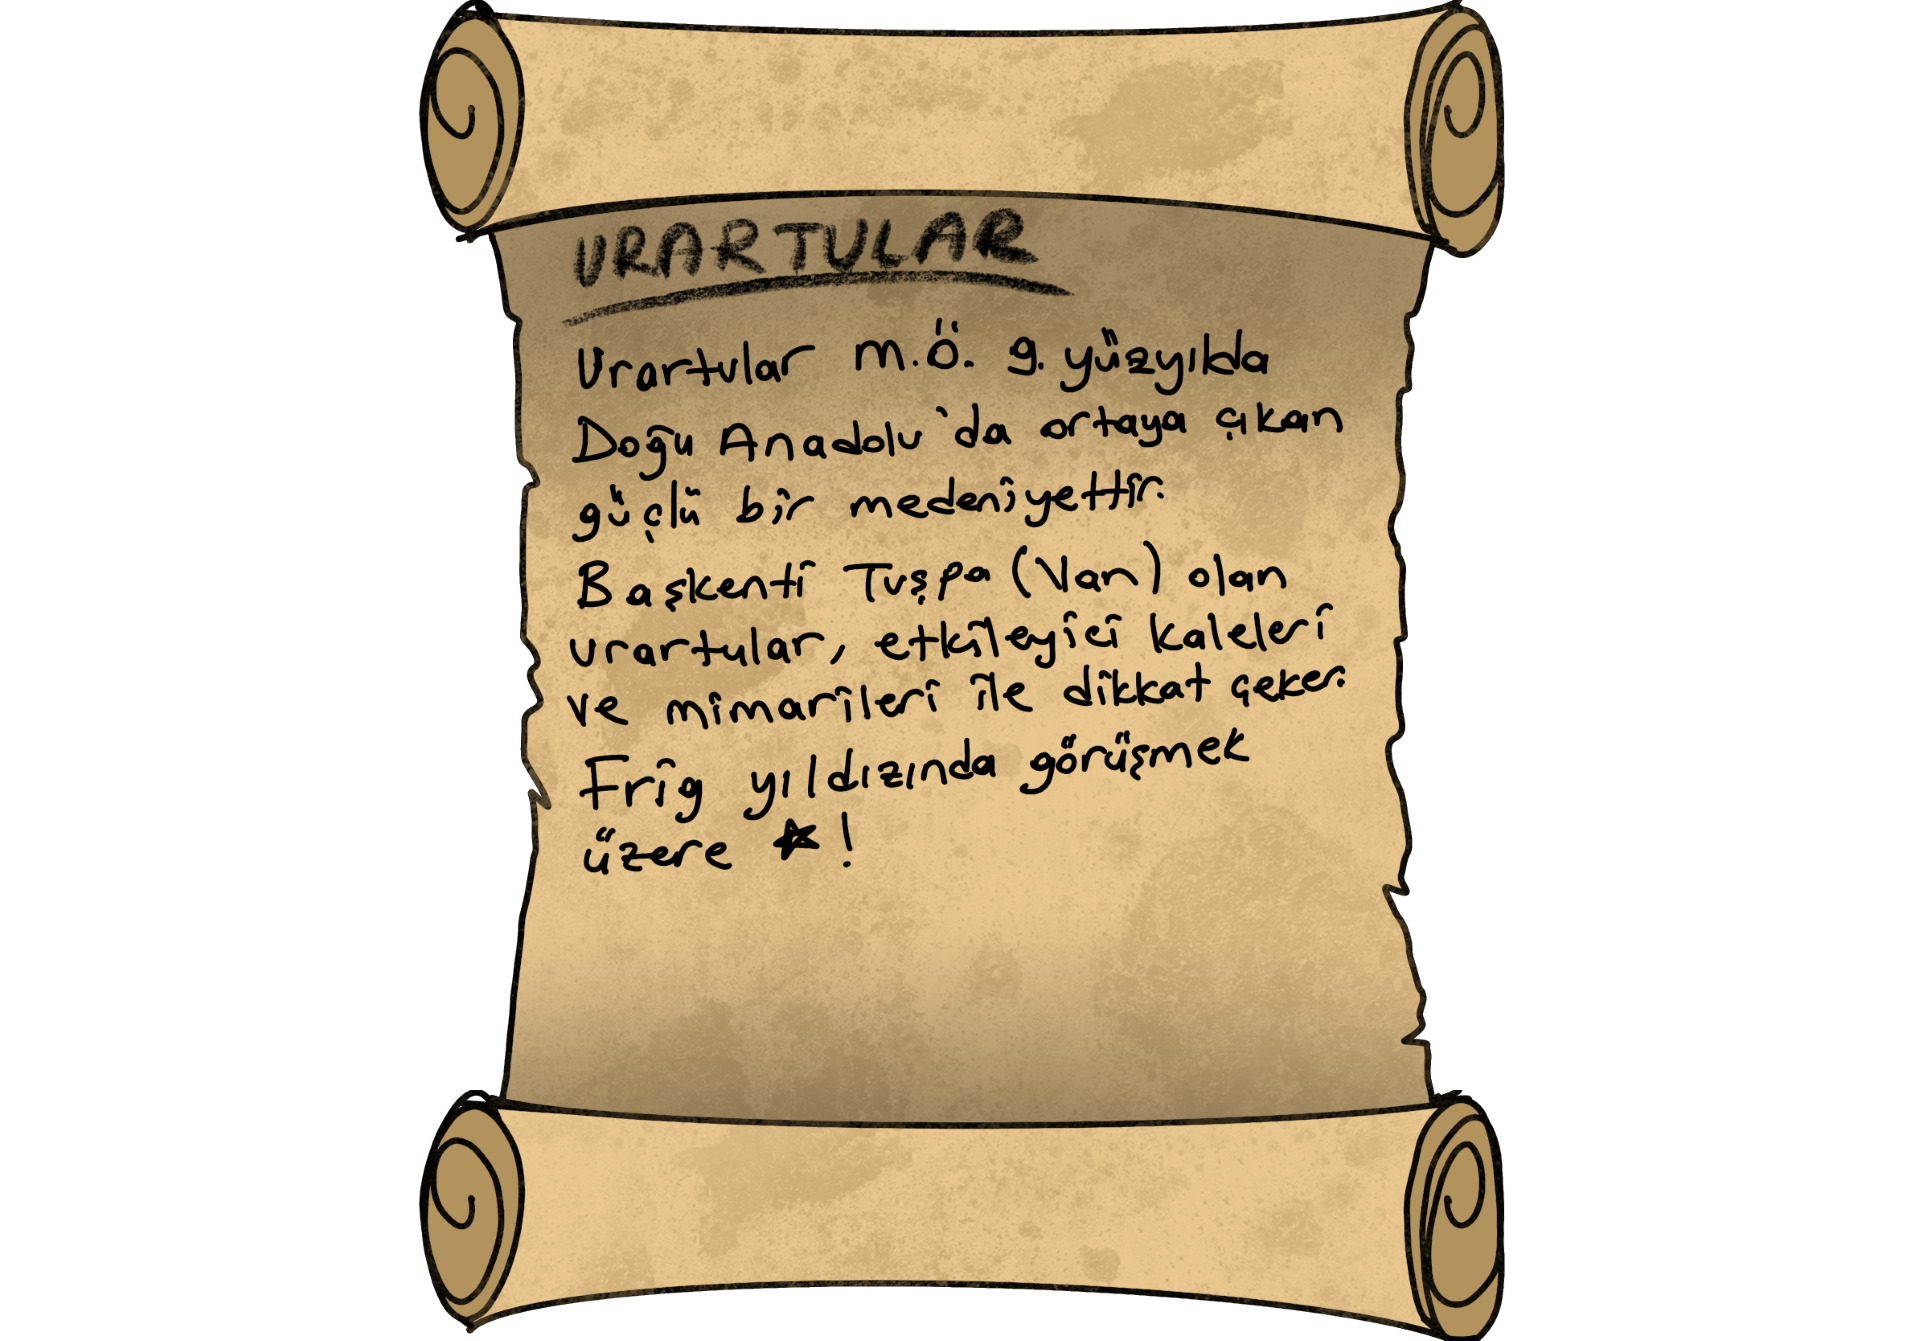 URARTULAR
Urartular M.Ö. 9. yüzyılda
Doğu Anadolu'da ortaya çıkan
güçlü bir medeniyettir.
Başkenti Tuşpa (Van) olan
urartular, etkileyici kaleleri
ve mimarileri ile dikkat çeker.
Frig yıldızında görüşmek
üzere ★!